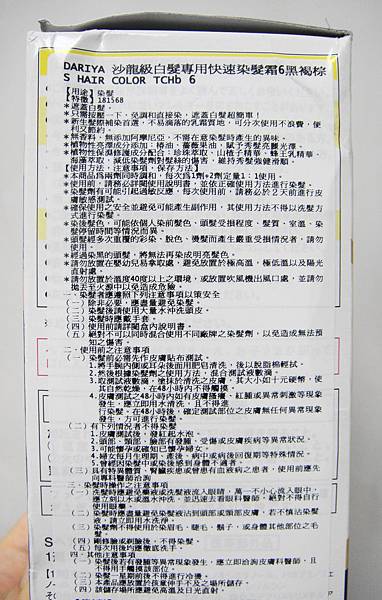 DARIYA 沙龍級白髮專用快速染髮霜6黑褐棕
S HAIR COLOR TCHb 6
【用途】染髮
【特徵】181568
＊遮蓋白髮。
＊只需按壓一下、免調和直接染，遮蓋白髮超簡單！
＊新生髮際補染首選，不易滴落的乳霜質地，可分次使用不浪費，便
利又節約。
＊無香料、無添加阿摩尼亞，不需在意染髮時產生的異味。
＊植物性亮澤成分添加：椿油、薔薇果油，賦予秀髮亮麗光澤。
＊植物性保濕修護成分配合：珍珠萃取、山楂子精華、蜂王乳精華、
海藻萃取，減低染髮劑對髮絲的傷害，維持秀髮強健滑順。
【使用方法，注意事項，保存方法】
＊本商品為兩劑同時調和，每次為1劑+2劑定量1：1使用。
＊使用前，請務必詳閱使用說明書，並依正確使用方法進行染髮。
＊染髮劑有可能引起過敏反應。每次使用前，請務必於2天前進行皮
膚敏感測試。
＊確保使用之安全並避免可能產生副作用，其使用方法不得以洗髮方
式進行染髮。
＊染後髮色，可能依個人染前髮色，頭髮受損程度、髮質、室溫、染
髮停留時間等情況而異。
＊頭髮經多次重複的彩染、脫色、燙髮而產生嚴重受損情況者，請勿
使用。
＊經過染黑的頭髮，將無法再染成明亮髮色。
＊請勿放置在嬰幼兒易拿取處，避免放置於極高溫，極低溫以及陽光
直射處。
＊請勿放置於溫度40度以上之環境，或放置吹風機出風口處，並請勿
拋丟至火源中以免造成危險。
一、染髮者應遵照下列注意事項以策安全
（一）除非必要，應盡量避免染髮。
（二）染髮後請使用大量水沖洗頭皮。
（三）染髮時應戴手套。
（四）使用前請詳閱盒內說明書。
（五）絕對不可以同時混合使用不同廠牌之染髮劑，以免造成無法預
知之傷害。
二、使用前之注意事項
（一）染髮前必需先作皮膚貼布測試。
1.將手腕內側或耳朵後面用肥皂清洗，後以脫脂棉輕拭。
2.然後根據染髮劑之使用方法，混合測試液數滴。
3.取測試液數滴，塗抹於清洗之皮膚，其大小如十元硬幣，使
其自然乾燥，在48小時內不得觸摸。
4.皮膚測試之48小時內如有皮膚搔癢、紅腫或異常刺激等現象
發生，應立即用水清洗，且不得進
行染髮。在48小時後，確定測試部位之皮膚無任何異常現象
發生，方可進行染髮。
（二）有下列情況者不得染髮
1.皮膚測試後，發紅起水泡。
2.頭部、頸部、臉部有發腫、受傷或皮膚疾病等異常狀況。
3.可能懷孕或確知已懷孕婦女。
4.婦女每月生理期、產後、病中或病後回復期等特殊情況。
5.曾經因染髮中或染後感到身體不適者。
（三）具有特異體質、腎臟疾患或曾患有血液病之患者，使用前應先
向專科醫師洽詢
三、染髮時操作之注意事項
（一）洗髮時應避免藥液或洗髮液流入眼睛，萬一不小心流入眼中，
應立刻以水或溫水沖洗，並迅速去看眼科醫師，絕對不得自行
使用眼藥。
（二）染髮時應盡量避免染髮液沾到頭部或頸部皮膚，若不慎沾染髮
液，請立即用水洗淨。
（三）染髮劑不得使用於染眉毛、睫毛、鬍子，或身體其他部位之毛
髮。
（四）剛修臉或剃臉後，不得染髮。
（五）每次用後均應徹底洗手。
四、其他注意事項
（一）染髮後若有發腫等異常現象發生，應立即洽詢皮膚科醫師，且
不得用手觸摸該部位。
（二）染髮一星期前後不得進行冷燙。
（三）本產品應放於孩童伸手不及之場所儲存。
（四）該儲存場所應避免高溫及日光直射。